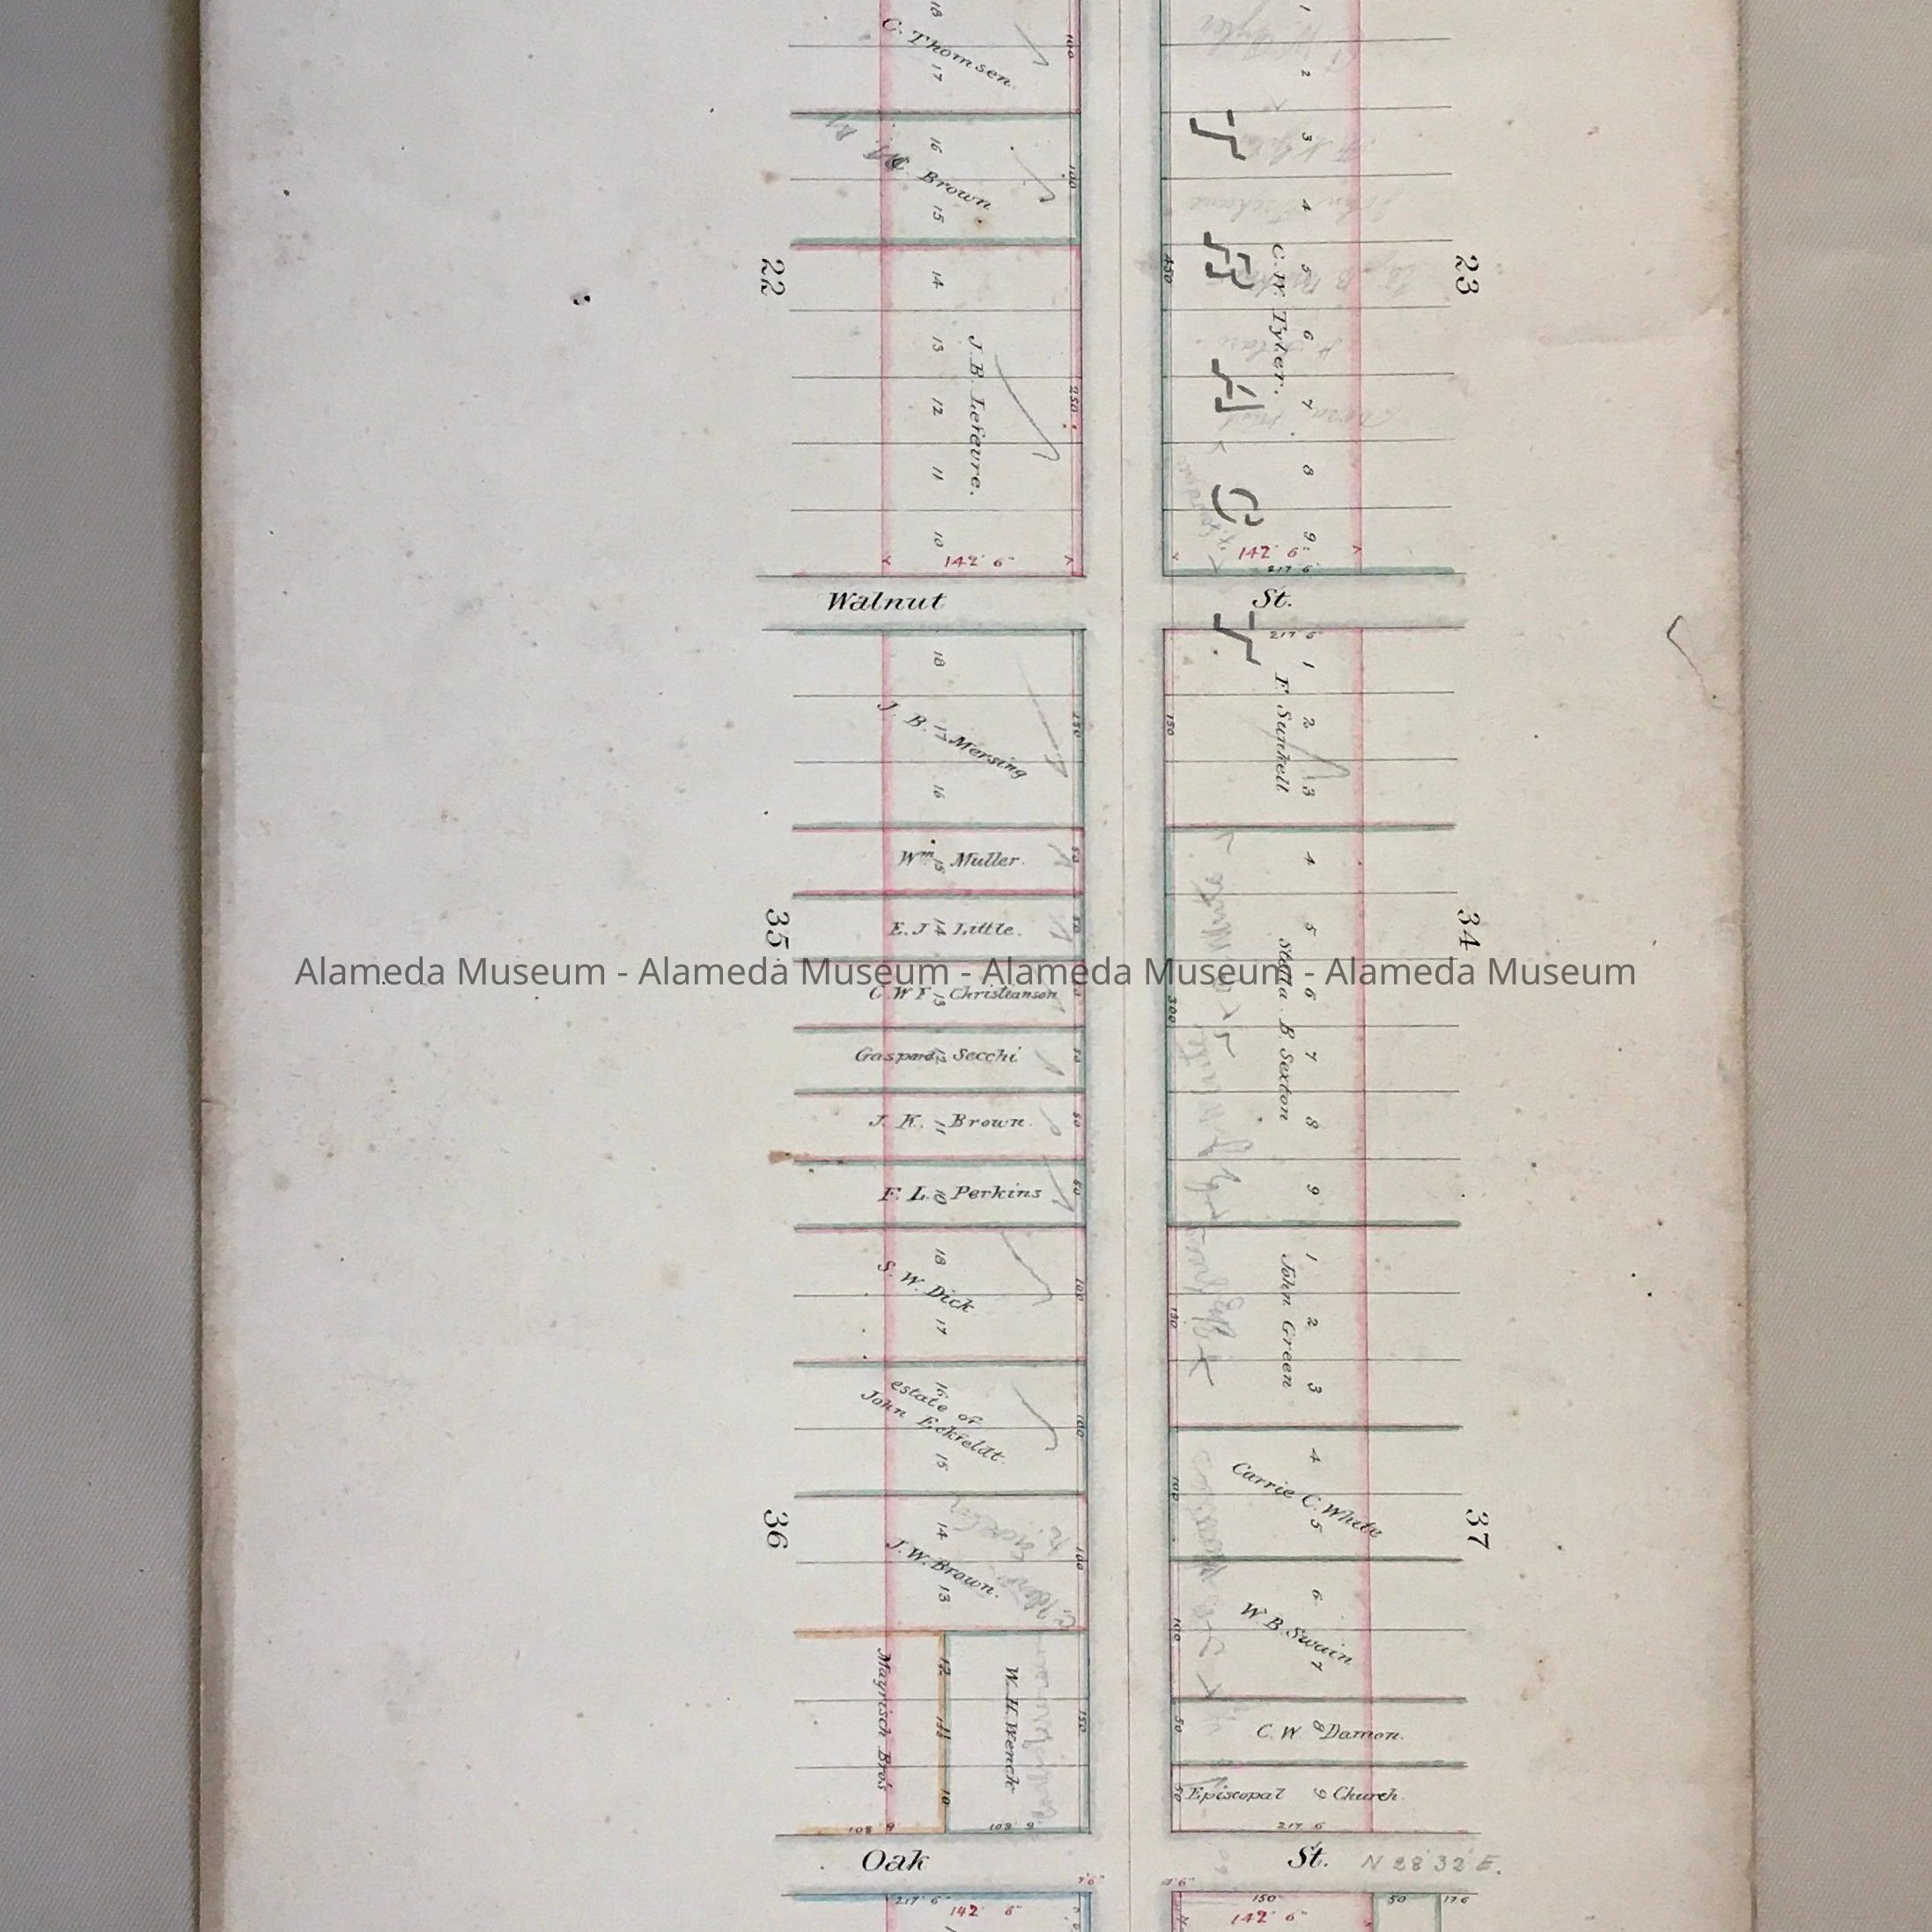 18
C. Thomsen.
17
100
16
Brown
15
100
22
14
13
J. B. Lefevre.
12
250
11
10
142' 6"
1
2
3
4
5
C. W. Tyler.
6
7
8
9
450
23
142' 6"
217 6
Walnut St.
18
J. B. Mersing
17
16
150
Wm Muller.
15
50
E. J. Little.
14
50
35
C. W. F. Christianson
13
Gaspard Secchi
12
50
J. K. Brown.
11
50
F. L. Perkins
10
50
217 6
1
F. Sunkell
2
3
150
4
5
34
Stella B. Sexton
6
7
8
9
300
18
S. W. Dick
17
100
16
estate of
John Eckfeldt.
15
100
36
14
J. W. Brown.
13
100
12
11
10
Mayrisch Bros
W. H. Wenck
150
108 9
108 9
1
John Green
2
3
150
4
Carrie C. White
5
100
37
6
W. B. Swain
7
100
C. W. Damon.
8
50
Episcopal Church.
9
50
217 6
Oak St.
N 28° 32' E.
7'6"
7'6"
217' 6"
142' 6"
150
50
17 6
142' 6"
Alameda Museum - Alameda Museum - Alameda Museum - Alameda Museum